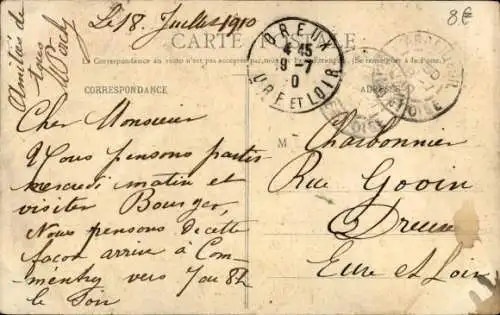 Le 18 Juillet 1910
8€
CARTE POSTALE
La Correspondance au verso n'est pas acceptée par
(Se renseigner à la Poste.)
CORRESPONDANCE
DREUX
4 45
9-7
0
EURE ET LOIR
Amitiés de
tous
Cher Monsieur
Nous pensons partir
mercredi matin et
visiter Bourges,
Nous pensons de cette
façon arrivé à Com-
mentry vers 7 ou 8 h
le soir
M Charbonnier
Rue Godin
Dreux
Eure et Loir